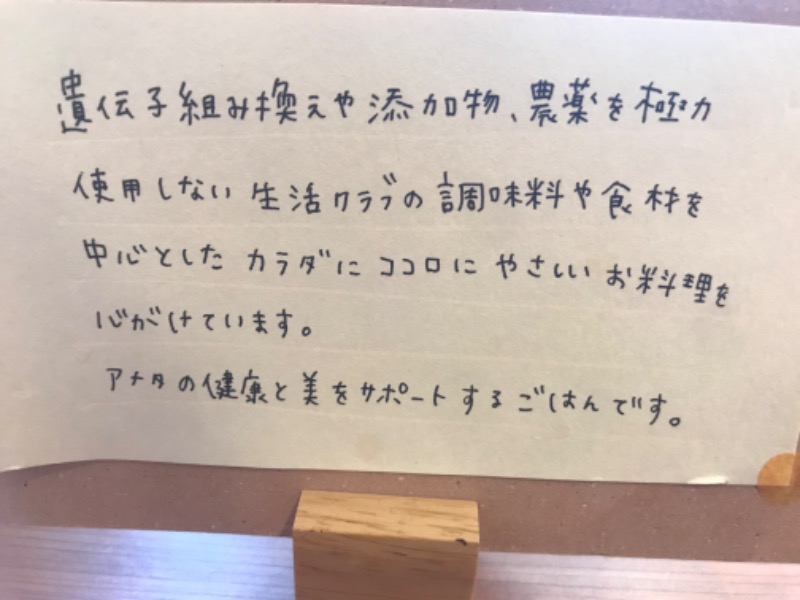 遺伝子組み換えや添加物、農薬を極力
使用しない生活クラブの調味料や食材を
中心としたカラダにココロにやさしいお料理を
心がけています。
アナタの健康と美をサポートするごはんです。